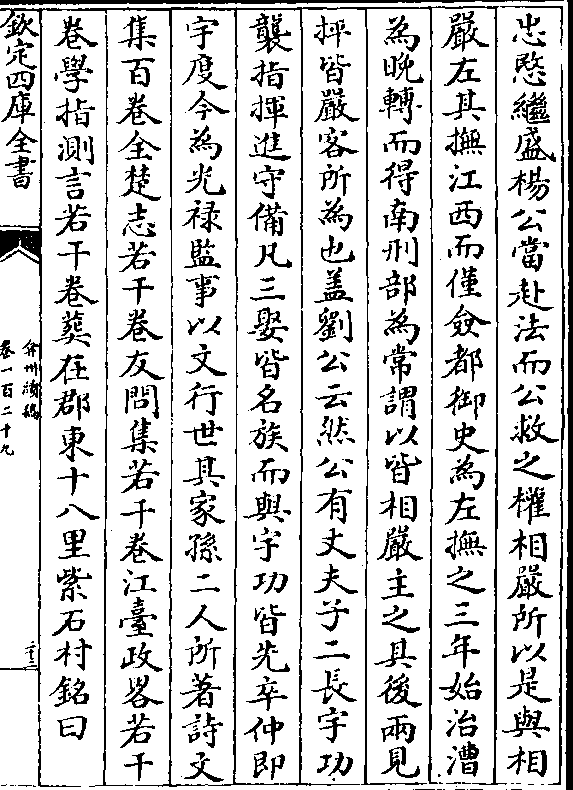 忠愍繼盛楊公當赴法而公救之權相嚴所以是與相
嚴左其撫江西而僅僉都御史為左撫之三年始治漕
為晚轉而得南刑部為常謂以皆相嚴主之其後兩見
抨皆嚴客所為也盖劉公云然公有丈夫子二長字功
襲指揮進守備凡三娶皆名族而與字功皆先卒仲即
宇度今為光禄監事以文行世其家孫二人所著詩文
集百卷全楚志若干卷友問集若干卷江臺政畧若干
卷學指測言若干卷葬在郡東十八里紫石村銘曰
欽定四庫全書
弇州續稿
卷一百二十九